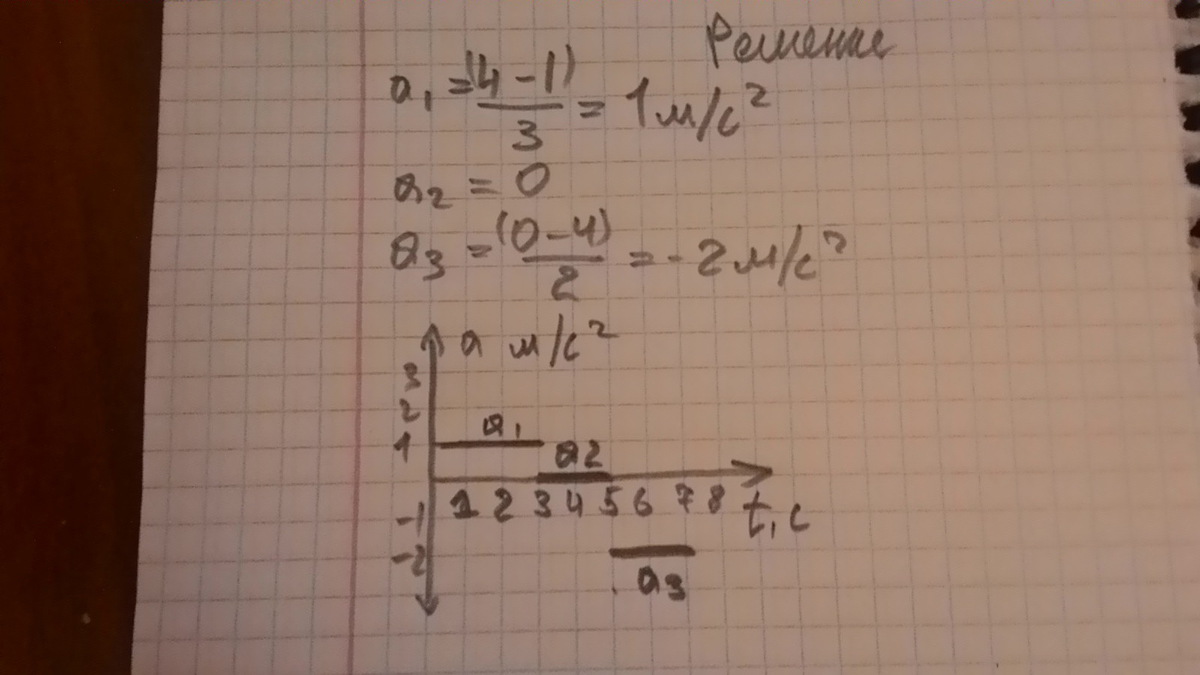 Решение
a₁ = (4 - 1) / 3 = 1 м/с²
a₂ = 0
a₃ = (0 - 4) / 2 = - 2 м/с²
a м/с²
3
2
a₁
1
a2
1 2 3 4 5 6 7 8 t, с
-1
-2
a₃